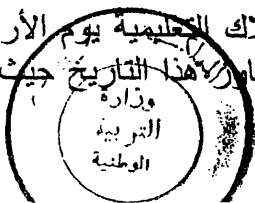 التعليمية يوم
هذا التاريخ حيث
وزارة
التربية
الوطنية